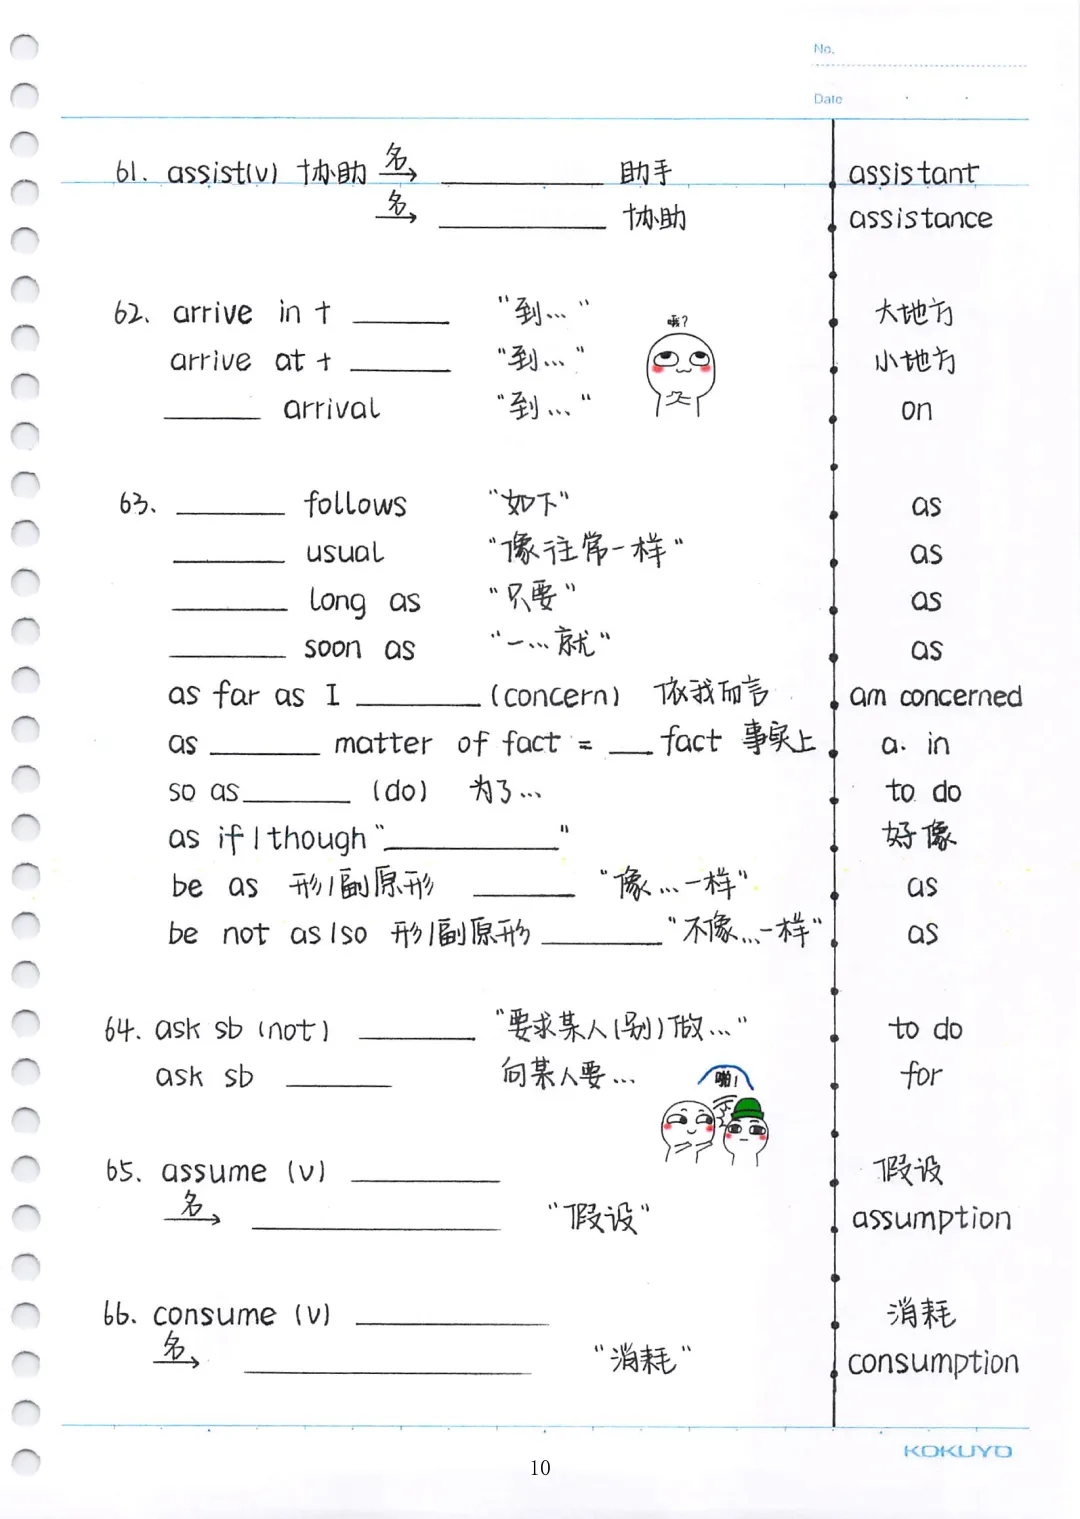 No.
Date
61. assist(v) 协助 名→ ________ 助手 assistant
名→ ________ 协助 assistance
62. arrive in + ________ "到..." 大地方
哦?
arrive at + ________ "到..." 小地方
________ arrival "到..." on
63. ________ follows "如下" as
________ usual "像往常一样" as
________ long as "只要" as
________ soon as "一...就" as
as far as I ________ (concern) 依我而言 am concerned
as ________ matter of fact = ___ fact 事实上 a. in
so as ________ (do) 为了... to do
as if/though "________" 好像
be as 形/副原形 ________ "像...一样" as
be not as/so 形/副原形 ________ "不像...一样" as
64. ask sb (not) ________ "要求某人(别)做..." to do
ask sb ________ 向某人要... for
啪!
65. assume (v) ________ 假设
名→ ________ "假设" assumption
66. consume (v) ________ 消耗
名→ ________ "消耗" consumption
KOKUYO
10